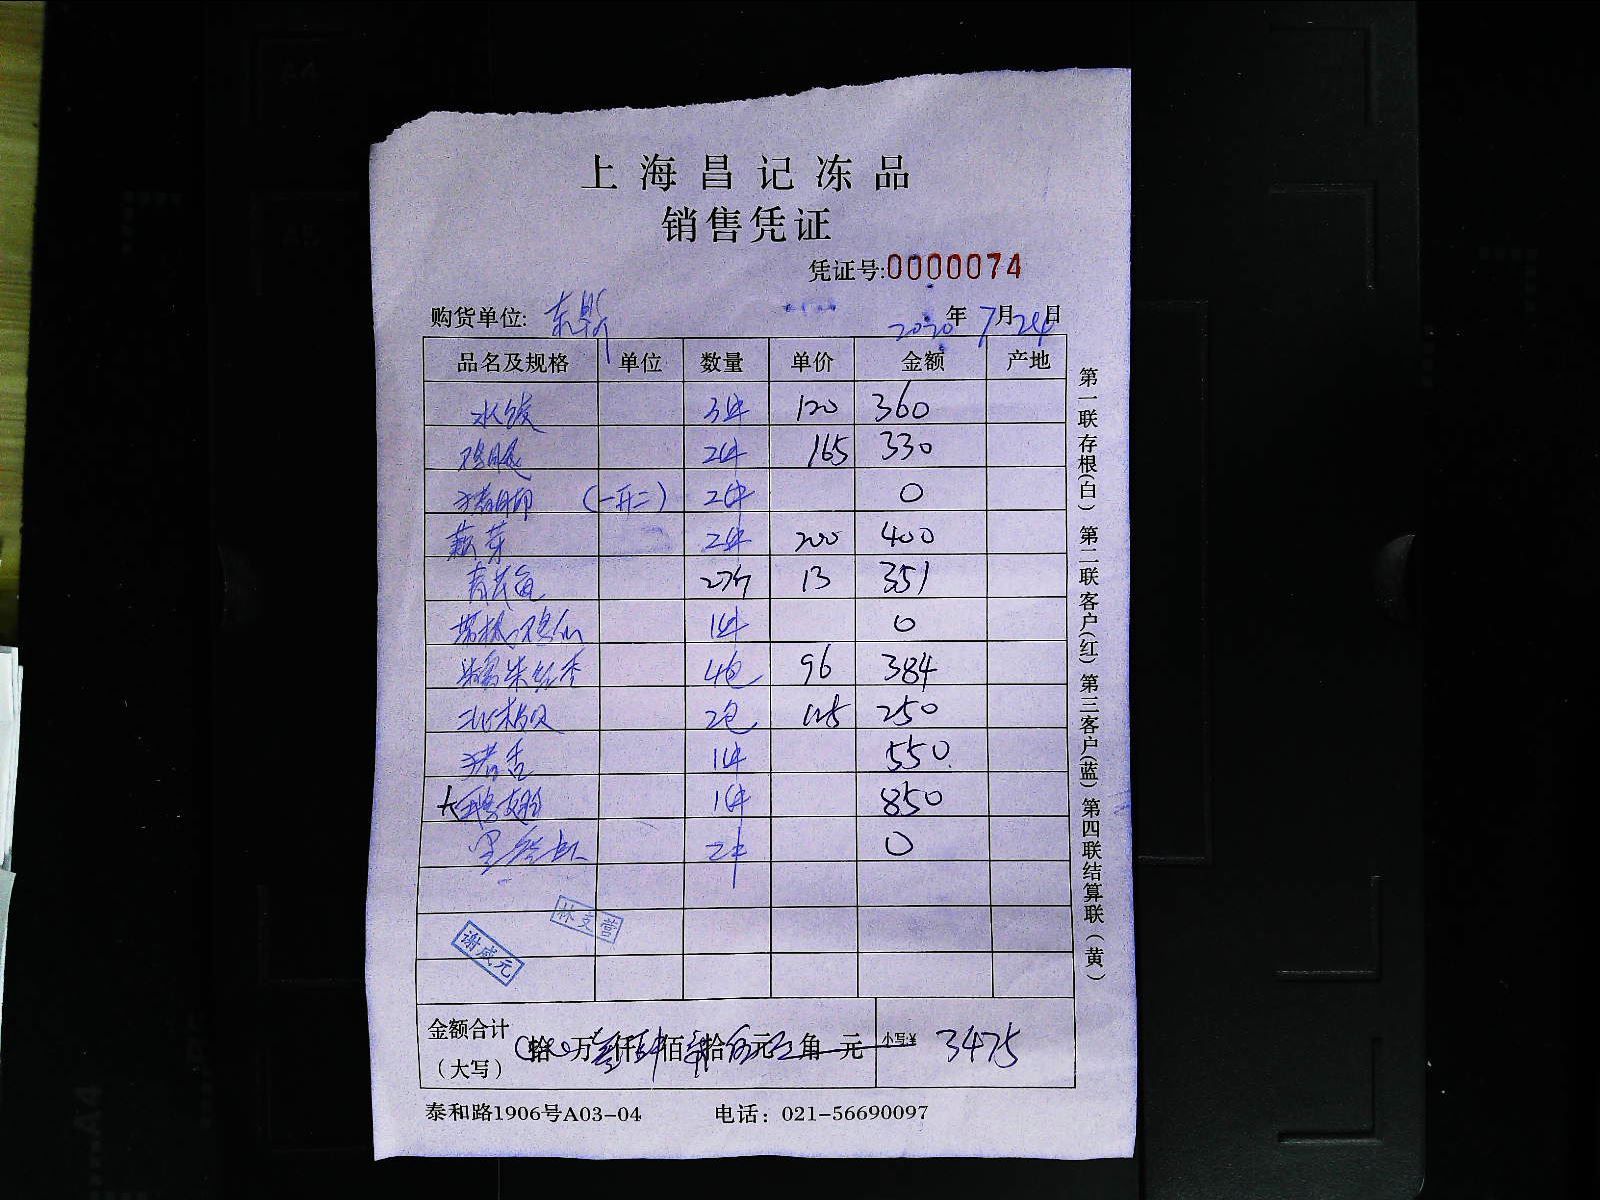 上海昌记冻品
销售凭证
凭证号:0000074
购货单位: 2020年7月24日
品名及规格 单位 数量 单价 金额 产地
水饺 3件 120 360
鸡腿 2件 165 330
猪脚 (一开二) 2件 0
蕨芽 2件 200 400
青占鱼 27斤 13 351
1件 0
4包 96 384
北极贝 2包 125 250
猪舌 1件 550
大鸭翅 1件 850
2件 0
林支营
谢成元
金额合计 拾 万叁仟肆佰柒拾伍元 角 元 小写:¥ 3475
(大写)
泰和路1906号A03-04 电话: 021-56690097
第一联存根(白) 第二联客户(红) 第三客户(蓝) 第四联结算联(黄)